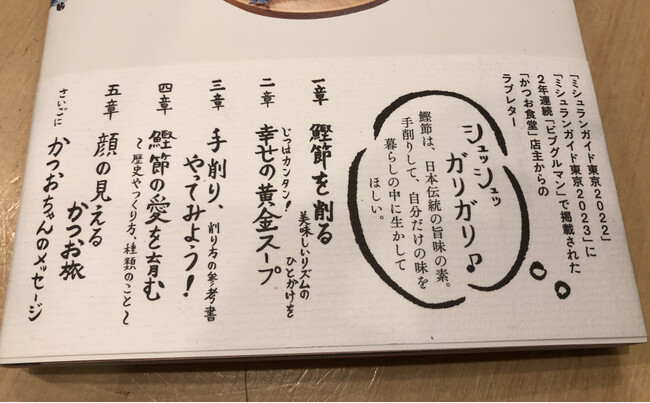 「ミシュランガイド東京2022」
「ミシュランガイド東京2023」に
2年連続「ビブグルマン」で掲載された
「かつお食堂」店主からの
ラブレター
シュッシュッ
ガリガリ♪
鰹節は、日本伝統の旨味の素。
手削りして、自分だけの味を
暮らしの中に生かして
ほしい。
一章 鰹節を削る
美味しいリズムの
ひとかけを
二章 じつはカンタン!
幸せの黄金スープ
三章 手削り、
やってみよう!
削り方の参考書
四章 鰹節の愛を育む
〜歴史やつくり方、種類のこと〜
五章 顔の見える
かつお旅
さいごに かつおちゃんのメッセージ